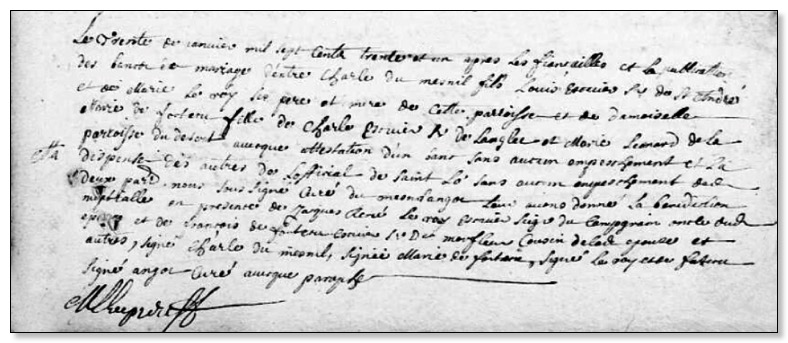 Le Trente de janvier mil sept cents trente et un apres les fiansailles et la publication
des bancs de mariage d'entre Charle du mesnil fils Louis Escuier Sr de St André
et de Marie Le roy ses pere et mere de cette paroisse et de damoiselle
Marie de fortenu fille de Charle Escuier Sr de Langle et Marie Lenard de la
paroisse du desert avecque attestation d'un banc sans aucun empeschement et la
dispense des autres de Lofficial de Saint Lo sans aucun empeschement
deux nous sous signé Curé du mesnil angot leur avons donné la benediction
nuptialle en presence de Jacques René Le roy Escuier Seigr du Campgrain oncle dud
epoux et de françois de Escuier Sr Du Cousin de lad epouse et
autres, signé Charle du mesnil, signée Marie de fortenu, signé Le roy et de
signé angot Curé avecque paraphe